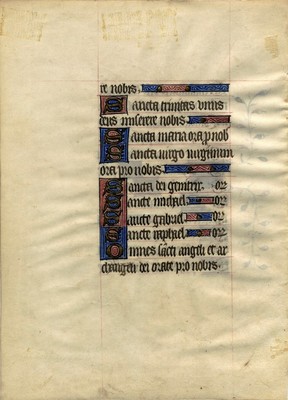 re nobis.
Sancta trinitas unus
deus miserere nobis
Sancta maria ora p nob
Sancta virgo virginum
ora pro nobis
Sancta dei genitrix. or
Sancte michael. or
Sancte gabriel. or
Sancte raphael. or
Omnes sancti angeli et ar
changeli dei orate pro nobis.